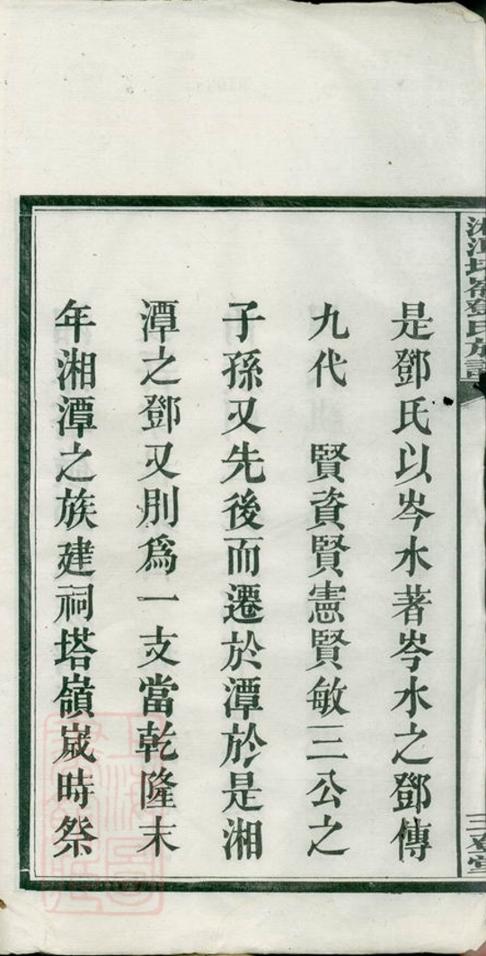 是鄧氏以岑水著岑水之鄧傳
九代 賢資賢憲賢敏三公之
子孫又先後而遷於潭於是湘
潭之鄧又別爲一支當乾隆末
年湘潭之族建祠塔嶺嵗時祭
鄧氏族譜
三登堂
上海圖